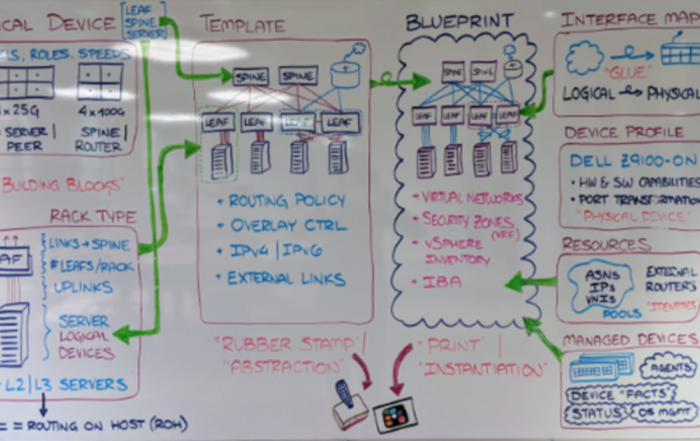 ICAL DEVICE
[LEAF
SPINE
SERVER]
ELS, ROLES, SPEEDS
x 25G
4 x 100G
SERVER |
PEER
SPINE |
ROUTER
BUILDING BLOCKS"
RACK TYPE
AF
LINKS → SPINE
# LEAFS/RACK
UPLINKS
SERVER
LOGICAL
DEVICES
L2|L3 SERVERS
= = ROUTING ON HOST (ROH)
TEMPLATE
SPINE SPINE
LEAF LEAF LEAF LEAF
+ ROUTING POLICY
+ OVERLAY CTRL
+ IPV4 | IPV6
+ EXTERNAL LINKS
"RUBBER STAMP" |
"ABSTRACTION"
BLUEPRINT
SPINE SPINE
LEAF LEAF LEAF LEAF
+ VIRTUAL NETWORKS
+ SECURITY ZONES
(VRF)
+ VSPHERE
INVENTORY
+ IBA
"PRINT" |
"INSTANTIATION"
INTERFACE MAP
"GLUE"
LOGICAL → PHYSICAL
DEVICE PROFILE
DELL Z9100-ON
• HW & SW CAPABILITIES
• PORT TRANSFORMATION
"PHYSICAL DEVICE"
RESOURCES
ASNS
IPs
VNIS
POOLS
EXTERNAL
ROUTERS
MANAGED DEVICES
AGENTS
DEVICE "FACTS"
STATUS
OS MGMT